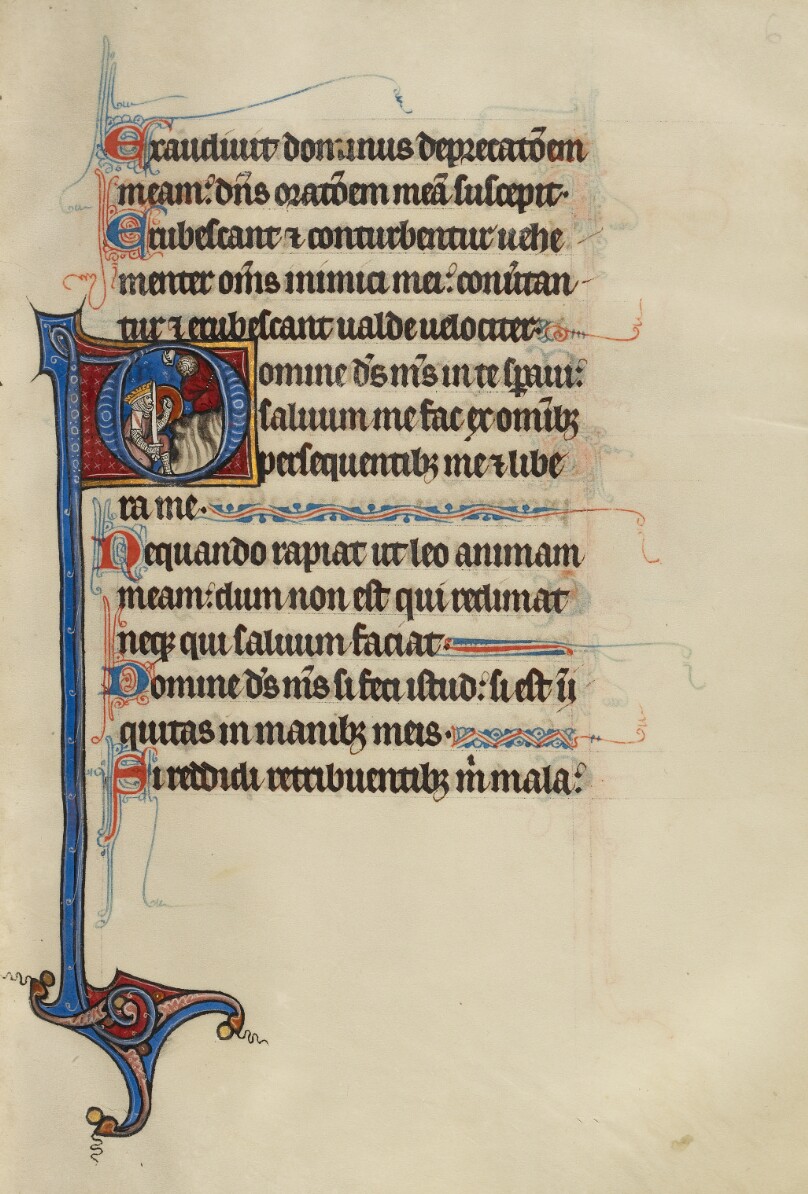 6
Exaudiuit dominus deprecatōem
meam: dn̄s oratōem meā suscepit.
Erubescant ⁊ conturbentur uehe
menter om̄s inimici mei: conūtan
tur ⁊ erubescant ualde uelociter.
Domine d̄s m̄s in te sp̄aui:
saluum me fac ex om̄ibꝫ
persequentibꝫ me ⁊ libe
ra me.
Nequando rapiat ut leo animam
meam: dum non est qui redimat
neqꝫ qui saluum faciat.
Domine d̄s m̄s si feci istud: si est īi
quitas in manibꝫ meis.
Si reddidi retribuentibꝫ m̄ mala: